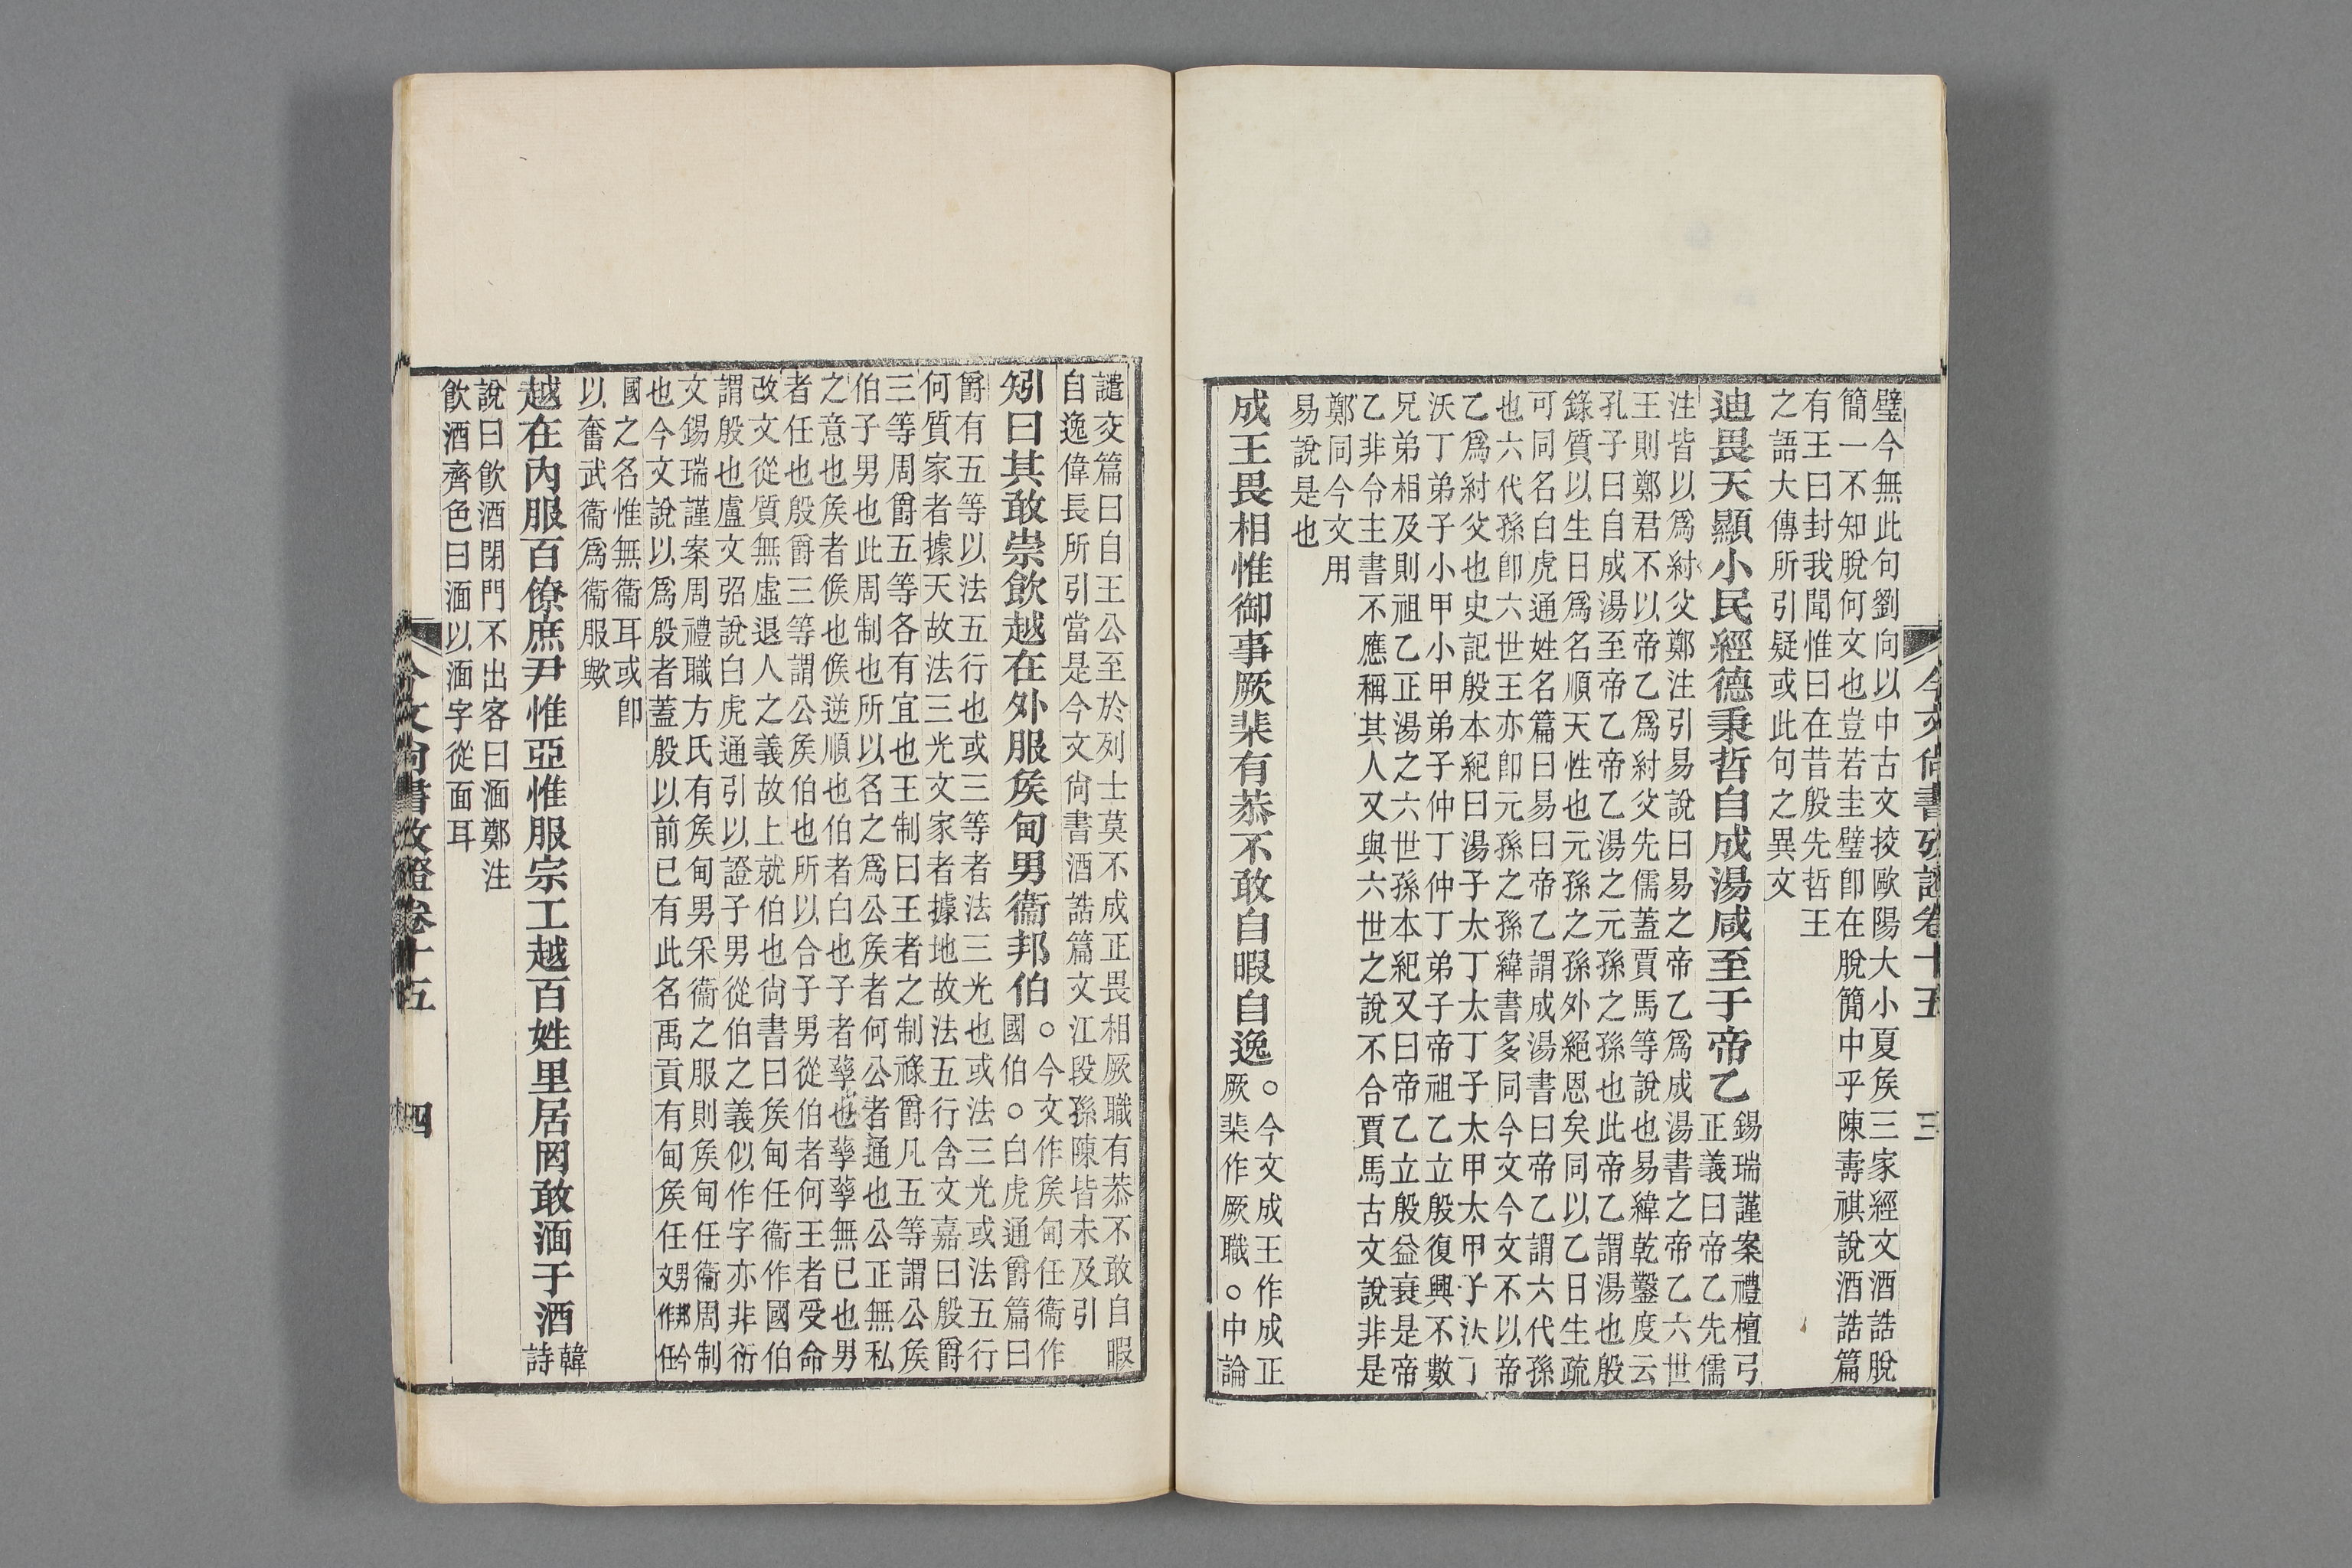 今文尚書攷證卷十五　三
璧今無此句劉向以中古文挍歐陽大小夏矦三家經文酒誥脫
簡一不知脫何文也豈若圭璧卽在脫簡中乎陳壽祺說酒誥篇
有王曰封我聞惟曰在昔殷先哲王
之語大傳所引疑或此句之異文
迪畏天顯小民經德秉哲自成湯咸至于帝乙
錫瑞謹案禮檀弓
正義曰帝乙先儒
注皆以爲紂父鄭注引易說曰易之帝乙爲成湯書之帝乙六世
王則鄭君不以帝乙爲紂父先儒蓋賈馬等說也易緯乾鑿度云
孔子曰自成湯至帝乙帝乙湯之元孫之孫也此帝乙謂湯也殷
錄質以生日爲名順天性也元孫之孫外絕恩矣同以乙日生疏
可同名白虎通姓名篇曰易曰帝乙謂成湯書曰帝乙謂六代孫
也六代孫卽六世王亦卽元孫之孫緯書多同今文今文不以帝
乙爲紂父也史記殷本紀曰湯子太丁太丁子太甲太甲子沃丁
沃丁弟子小甲小甲弟子仲丁仲丁弟子帝祖乙立殷復興不數
兄弟相及則祖乙正湯之六世孫本紀又曰帝乙立殷益衰是帝
乙非令主書不應稱其人又與六世之說不合賈馬古文說非是
鄭同今文用
易說是也
成王畏相惟御事厥棐有恭不敢自暇自逸
○今文成王作成正
厥棐作厥職○中論
譴交篇曰自王公至於列士莫不成正畏相厥職有恭不敢自暇
自逸偉長所引當是今文尙書酒誥篇文江段孫陳皆未及引
矧曰其敢崇飮越在外服矦甸男衞邦伯
○今文作矦甸任衞作
國伯○白虎通爵篇曰
爵有五等以法五行也或三等者法三光也或法三光或法五行
何質家者據天故法三光文家者據地故法五行含文嘉曰殷爵
三等周爵五等各有宜也王制曰王者之制祿爵凡五等謂公矦
伯子男也此周制也所以名之爲公矦者何公者通也公正無私
之意也矦者候也候逆順也伯者白也子者孳也孳孳無已也男
者任也殷爵三等謂公矦伯也所以合子男從伯者何王者受命
改文從質無虛退人之義故上就伯也尙書曰矦甸任衞作國伯
謂殷也盧文弨說白虎通引以證子男從伯之義似作字亦非衍
文錫瑞謹案周禮職方氏有矦甸男釆衞之服則矦甸任衞周制
也今文說以爲殷者蓋殷以前已有此名禹貢有甸矦任
男邦今
文作任
國之名惟無衞耳或卽
以奮武衞爲衞服歟
越在內服百僚庶尹惟亞惟服宗工越百姓里居罔敢湎于酒
韓
詩
說曰飮酒閉門不出客曰湎鄭注
飮酒齊色曰湎以湎字從面耳
今文尚書攷證卷十五　四